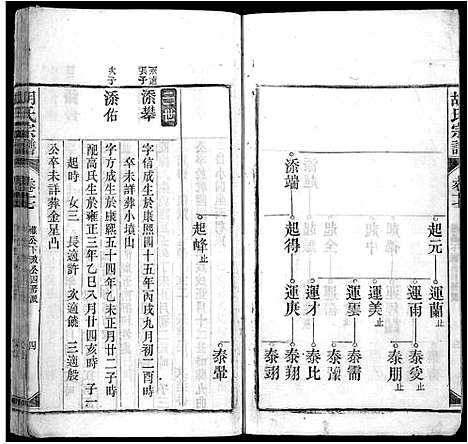 胡氏宗譜
卷十七
起元 運蘭止
運雨 泰爻止
泰朋止
運美止
添端 起得 運雲 泰儒
泰藻
運才 泰比
運庚 泰翔
泰翊
起峰止 泰翬
添攀
宗遠長子
字信成生於康熙四十五年丙戌九月初二酉時
卒未詳葬小墳山
添佑
次子
字方成生於康熙五十四年乙未正月廿二子時
配高氏生於雍正三年乙巳八月廿四亥時 子一
起時 女三 長適許 次適饒 三適殷
公卒未詳葬金星凸
胡氏宗譜
卷十七
四